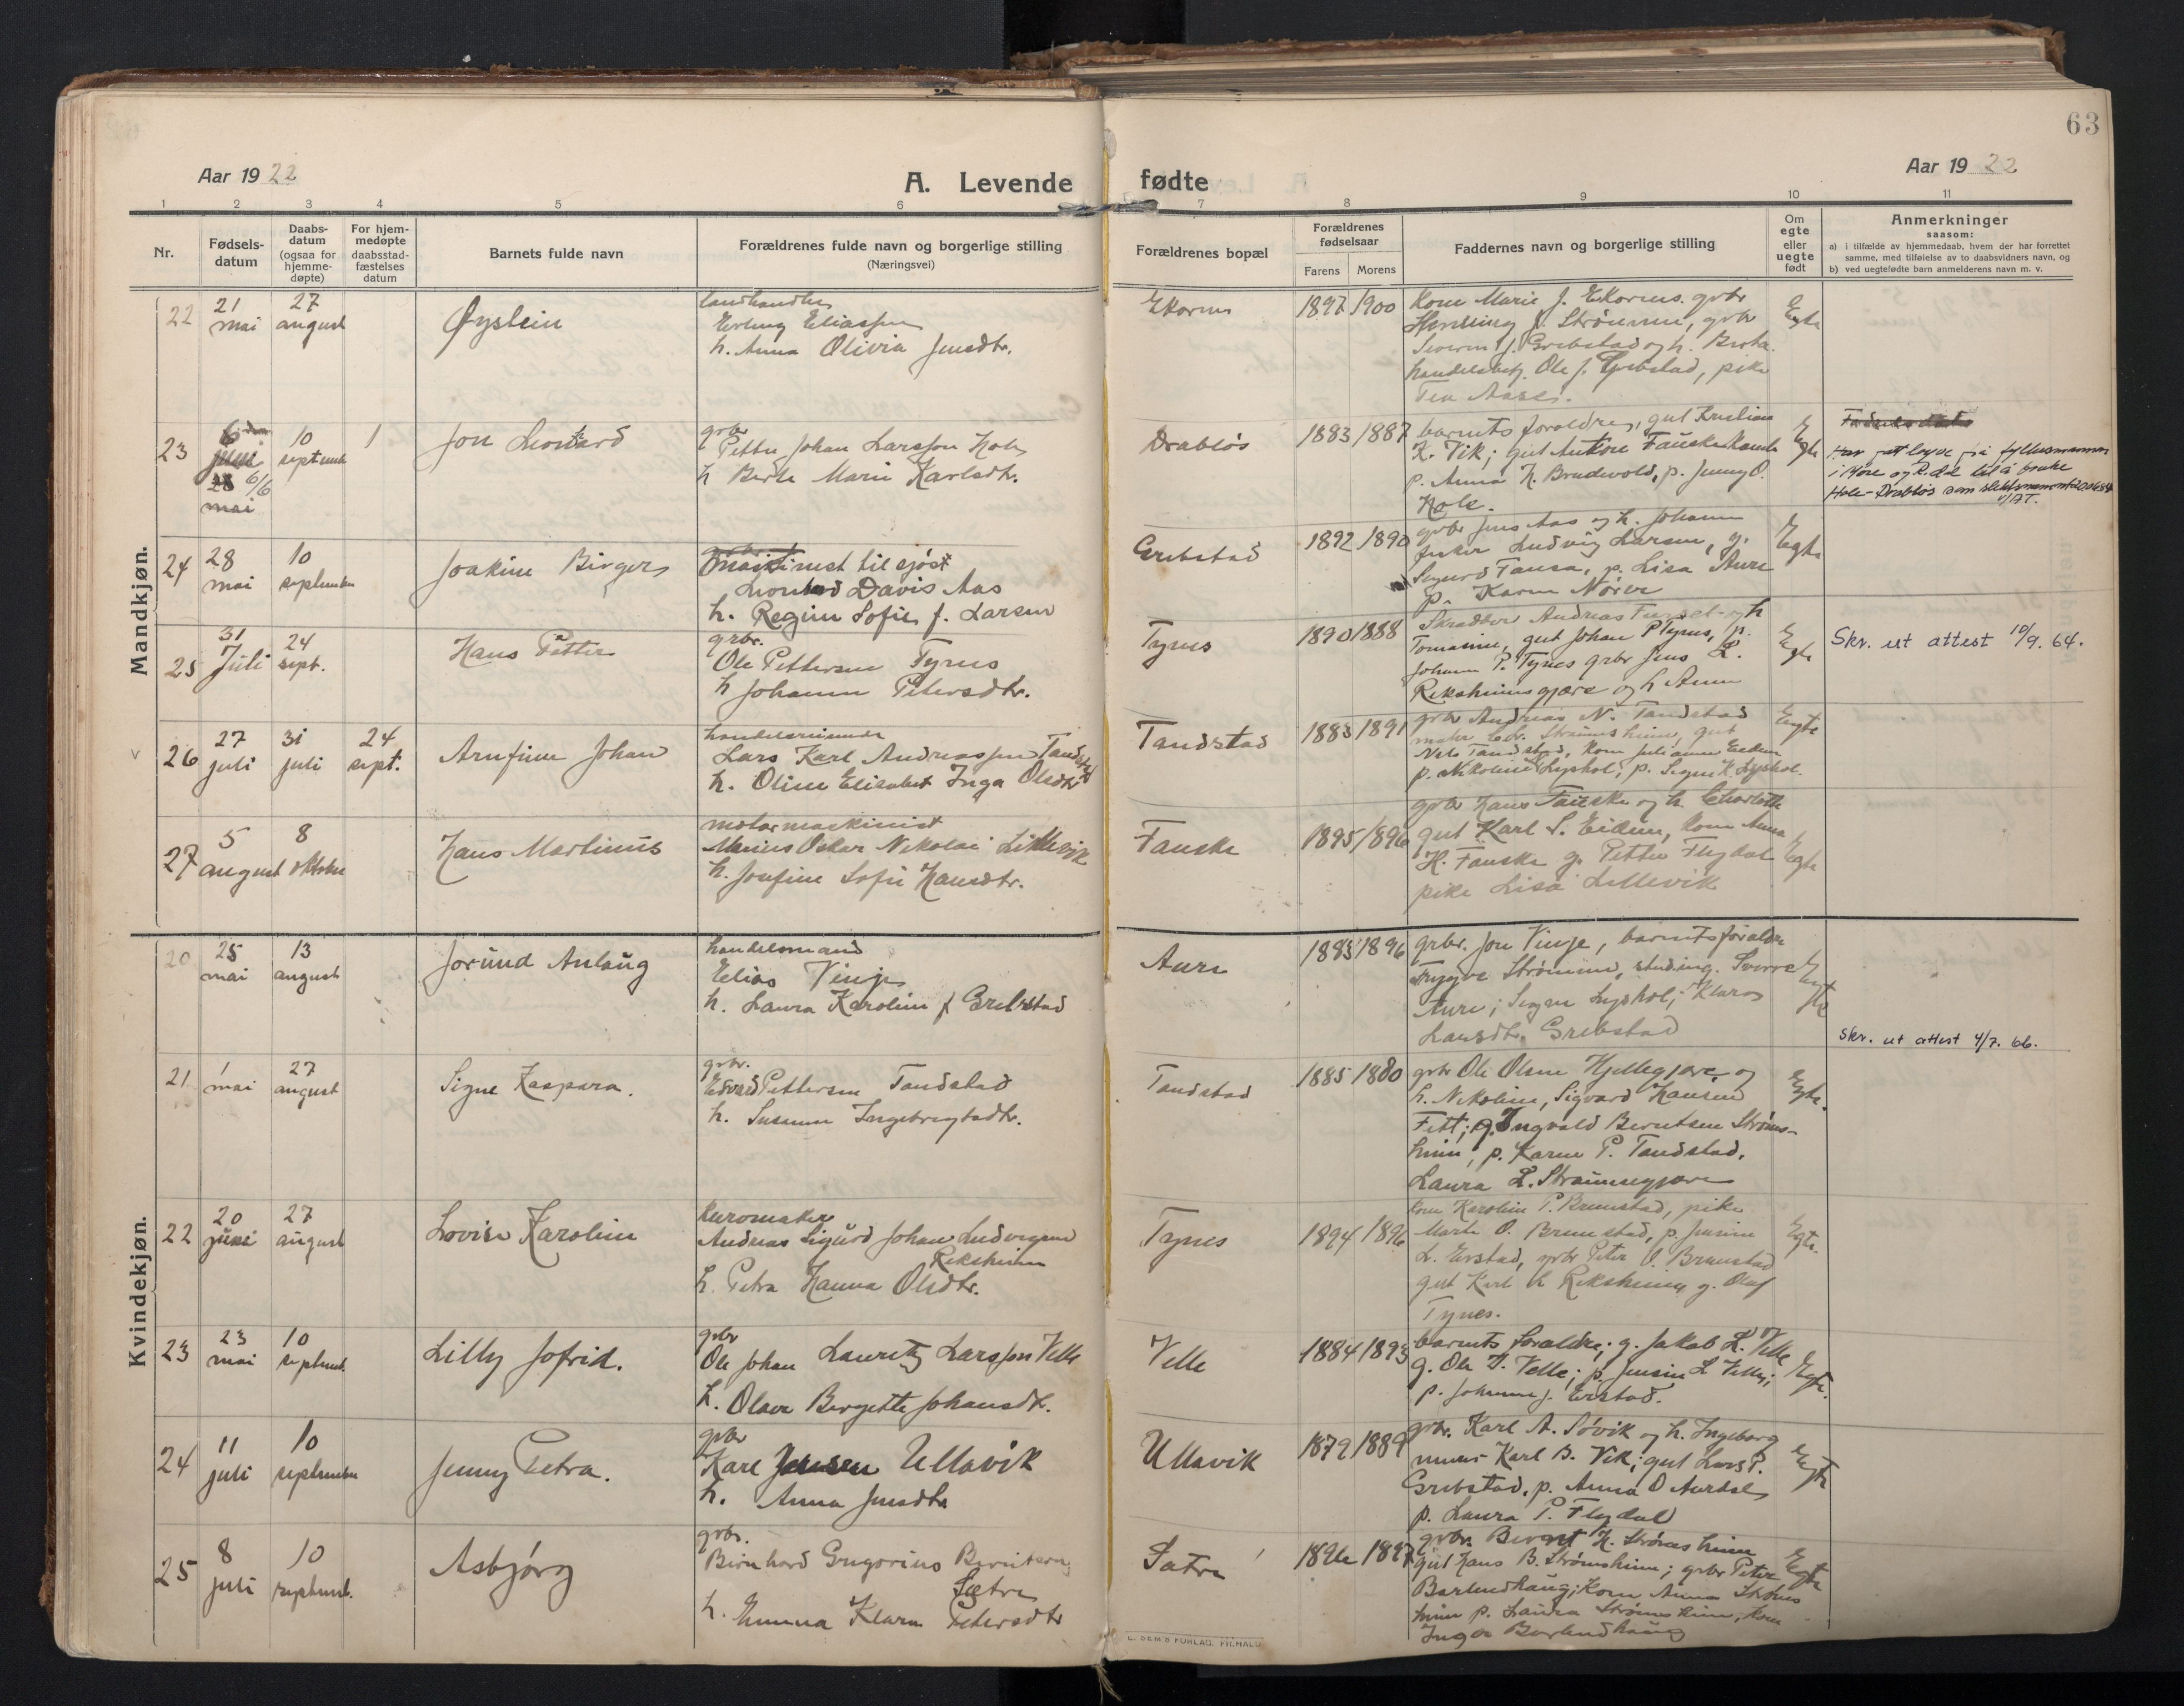 63
Aar 1922
A. Levende fødte
Aar 1922
1 2 3 4 5 6 7 8 9 10 11
Nr.
Fødsels-
datum
Daabs-
datum
(ogsaa for
hjemme-
døpte)
For hjem-
medøpte
daabsstad-
fæstelses
datum
Barnets fulde navn
Forældrenes fulde navn og borgerlige stilling
(Næringsvei)
Forældrenes bopæl
Forældrenes
fødselsaar
Farens Morens
Faddernes navn og borgerlige stilling
Om
egte
eller
uegte
født
Anmerkninger
saasom:
a) i tilfælde av hjemmedaab, hvem der har forrettet
samme, med tilføielse av to daabsvidners navn, og
b) ved uegtefødte barn anmelderens navn m. v.
Mandkjøn.
22
21
mai
27
august
Øystein
landhandler
Erling Eliassen
h. Anna Olivia Jensdtr.
Ekornes
1897 1900
Kone Marie J. Ekornes. grbr
Henning Strømmen, grbr
Severin J. Grebstad og h. Berta
handelsbetj. Ole J. Grebstad, pike
Tea Aase.
Egte
23
6
juni
28 6/6
mai
10
septemb
1
Jon Leonard
grbr
Petter Johan Larsson Hole
h Berte Marie Karlsdtr.
Drabløs
1883 1887
barnets foraldre, gut Kristian
K. Vik; gut Antore Fauskehamle
p. Anna K. Brudevold, p. Jenny O.
Hole.
Egte
Har fatt løyve frå fylkesmannen
i Møre og R.dal til å bruke
Hole-Drabløs som slektsnamn
24
28
mai
10
september
Joakim Birger
maskinist til sjøs
Leonard Davis Aas
h. Regine Sofie f. Larsen
Grebstad
1892 1890
grbr Jens Aas og h. Johanne
fisker Ludvig Larsen, g.
Sigurd Fausa, p. Lisa Aure
p. Karen Nörve
Egte
25
31
Juli
24
sept.
Hans Petter
grbr.
Ole Pettersen Tynes
h Johanne Petersdtr.
Tynes
1890 1888
Skrædder Andreas og h
Tomasine, gut Johan P Tynes, p.
Johanne P. Tynes grbr Jens L.
Reksheimsgjære og h Anne
Egte
Skr. ut attest 10/9. 64.
26
27
juli
31
juli
24
sept.
Arnfinn Johan
handelsreisende
Lars Karl Andreassen Tandstad
h. Oline Elisabet Inga Olsdtr
Tandstad
1883 1891
grbr Andreas N. Tandstad
maler Edv. Straumsheim, gut
Nils Tandstad, kone Julianne Eidem
p. Nikoline Lyshol, p. Signe K. Lyshol.
Egte
27
5
august
8
oktober
Hans Martinus
motormaskinist
Marius Oskar Nikolai Lillevik
h. Josefine Sofie Hansdtr.
Fauske
1895 1896
grbr Hans Fauske og h. Charlotte
gut Karl S. Eidem, kone Anna
H. Fauske g. Petter Flydal
pike Lisa Lillevik
Egte
Kvindekjøn.
20
25
mai
13
august
Jorund Anlaug
handelsmand
Elias Vinje
h. Laura Karoline f Grebstad
Aure
1883 1896
grbr. Jon Vinje, barnets foraldre
Trygve Strømme, studing. Sverre
Aure; Signe Lyshol; Klara
Larsdtr. Grebstad
Egte
Skr. ut attest 4/7. 66.
21
1
mai
27
august
Signe Kaspara.
grbr.
Edvard Pettersen Tandstad
h. Susanne Ingebrigtsdtr.
Tandstad
1885 1880
grbr Ole Olsen Hjellegjære og
h. Nikoline, Sigvard Hansen
Fett; g. Ingvald Berntsen Strøms-
heim, p. Karen P. Tandstad,
Laura L. Straumsgjære
Egte.
22
20
juni
27
august
Lovise Karoline
kuromaker
Andreas Sigurd Johan Ludvigsen
Reksheim
h. Petra Hanna Olsdtr.
Tynes
1894 1896
kone Karoline P. Brunstad, pike
Marte O. Brunstad, p. Jensine
L. Erstad, grbr Peter O. Brunstad
gut Karl L Reksheim, g. Olaf
Tynes.
Egte.
23
23
mai
10
septemb.
Lilly Jofrid.
grbr
Ole Johan Lauritz Larsson Velle
h. Olave Bergitte Johansdtr.
Velle
1884 1893
barnets foraldre; g. Jakob L. Velle
g. Ole D. Velle; p. Jensine L Velle;
p. Johanne J. Erstad.
Egte.
24
11
juli
10
september
Jenny Petra.
grbr
Karl Jensen Ullavik
h. Anna Jensdtr
Ullavik
1879 1889
grbr. Karl A. Søvik og h. Ingeborg
murer Karl B. Vik; gut Lars P.
Grebstad, p. Anna O Aurdal
p. Laura P. Flydal
Egte
25
8
juli
10
septemb.
Asbjørg
grbr.
Bernhard Gregorius Berntsen
Sætre
h. Emma Klara Petersdtr
Satre
1896 1897
grbr. Bernt H. Strømsheim
gut Hans B. Strømsheim; grbr Peter
Barlindhaug; Kone Anna Strøms
heim p. Laura Strømsheim, kone
Inga Barlindhaug
Egte
E. SEM'S FORLAG. FR.HALD